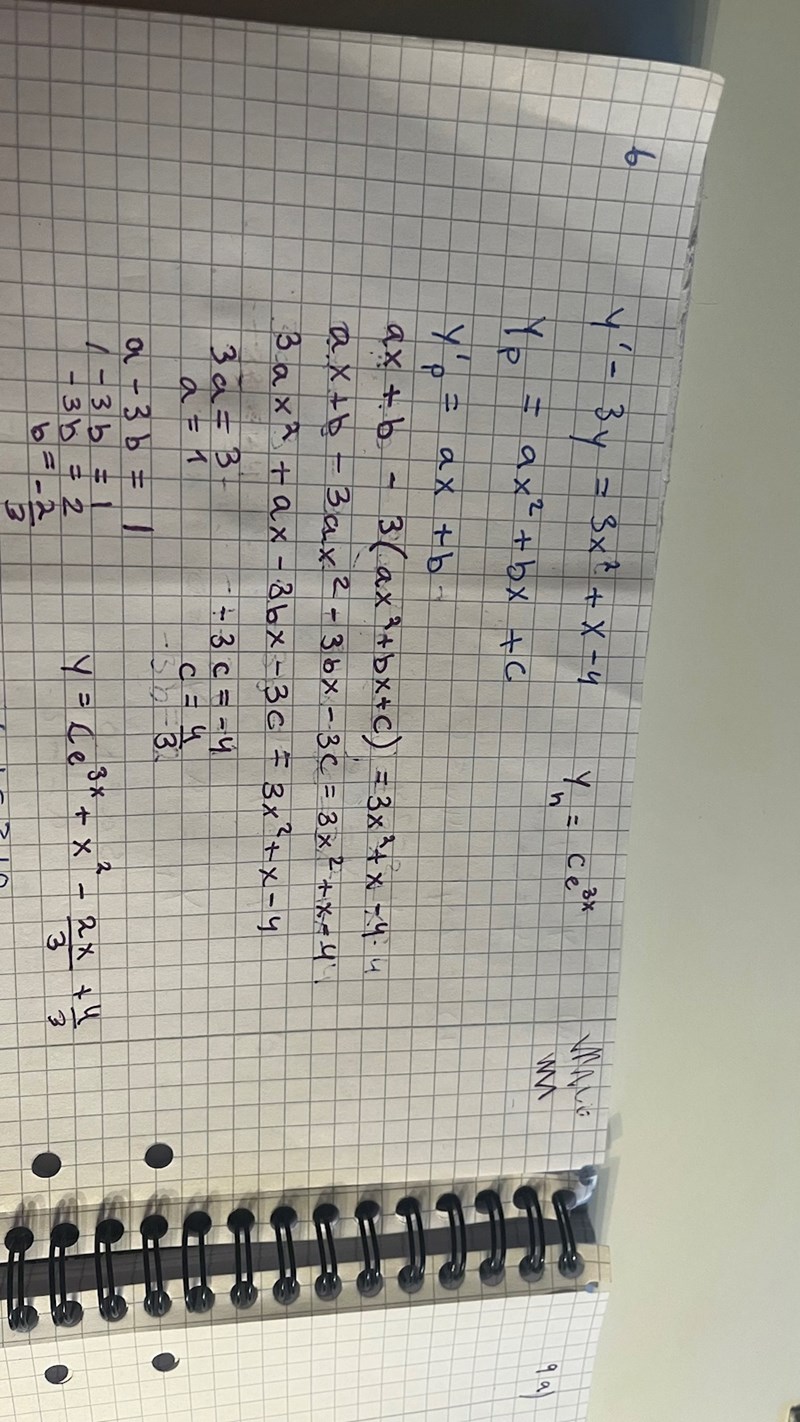 6
y' - 3y = 3x² + x - 4    yₕ = ce³ˣ
yₚ = ax² + bx + c
y'ₚ = ax + b
ax + b - 3(ax² + bx + c) = 3x² + x - 4
ax + b - 3ax² - 3bx - 3c = 3x² + x - 4
3ax² + ax - 3bx - 3c = 3x² + x - 4
3a = 3    -3c = -4
a = 1    c = 4/3
a - 3b = 1
1 - 3b = 1
-3b = 2    y = Ce³ˣ + x² - 2x/3 + 4/3
b = -2/3
9a)